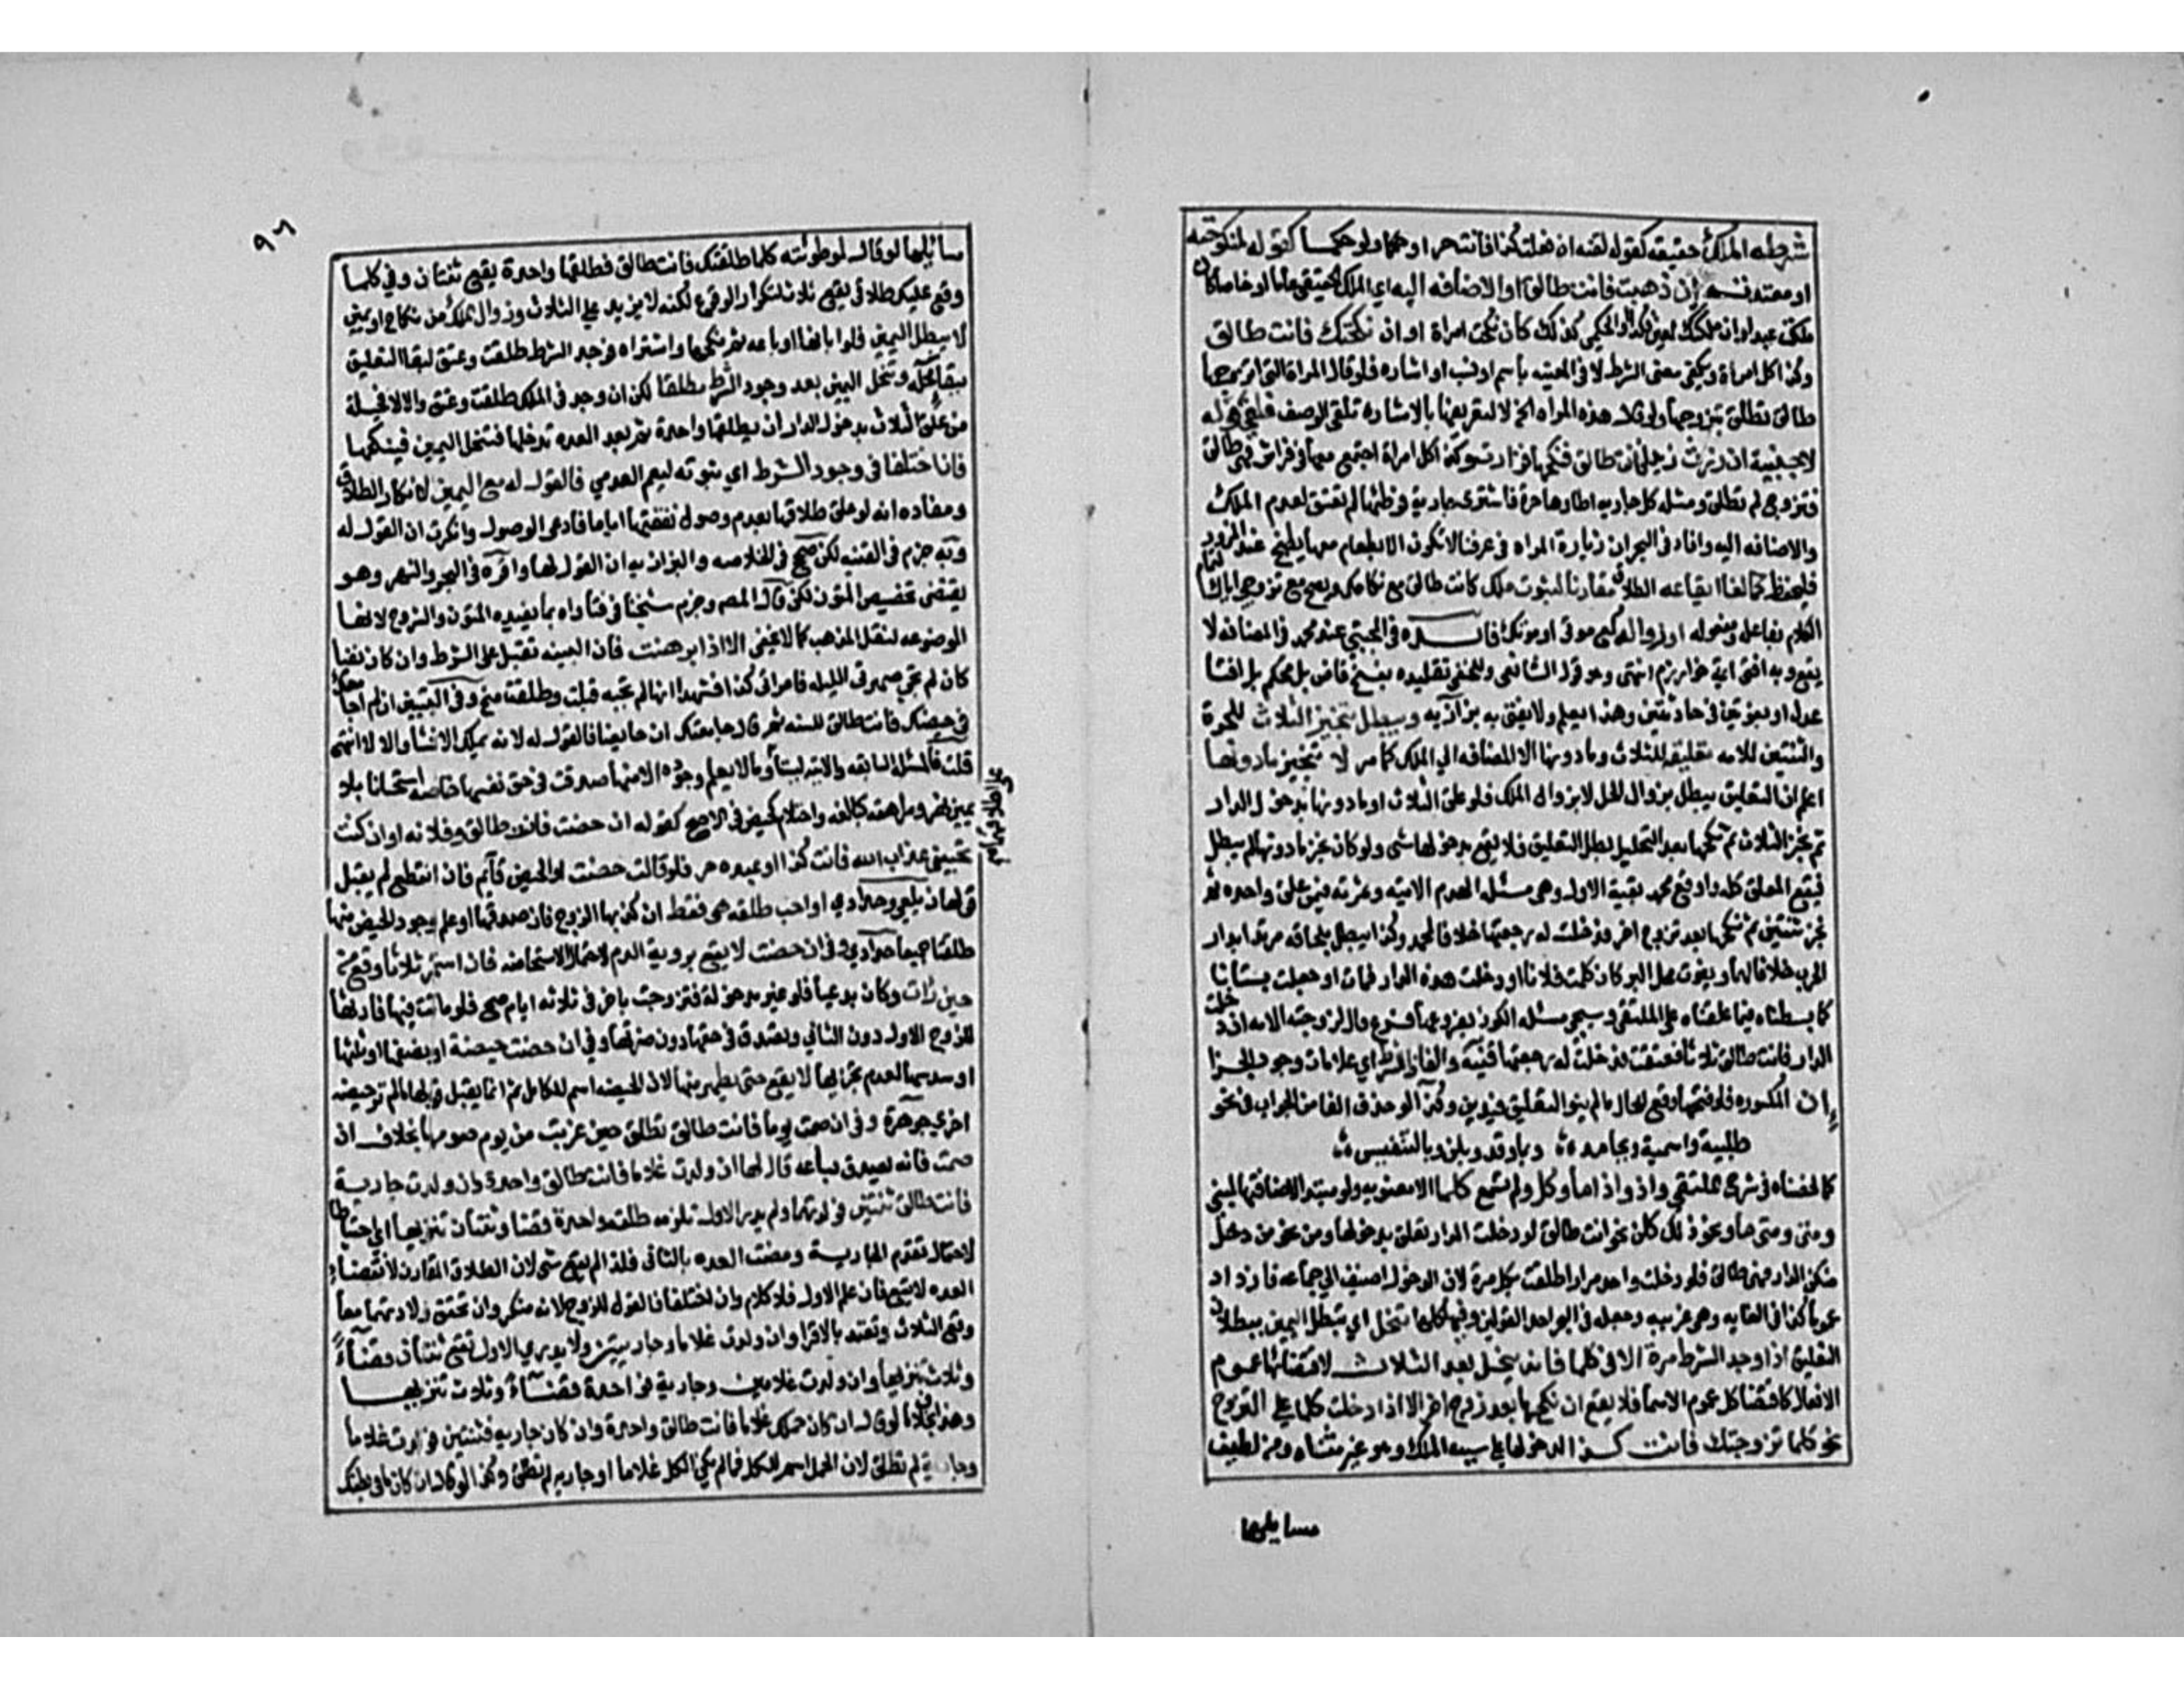 شرطه الملك حقيقه كقوله لقنه ان فعلت كذا فانت حر او حكما ولو حكما كقوله لمنكوحته
او معتدته ان ذهبت فانت طالق او الاضافه اليه اي الملك الحقيقي عاما او خاصا كان
ملكت عبدا او ان ملكتك لمعين فكذا والحكمي كذلك كان نكحت امراة او ان نكحتك فانت طالق
وكذا كل امراة ويكفي معنى الشرط لا في المعينه باسم او نسب او اشاره فلو قال المراة التي اتزوجها
طالق تطلق بتزوجها ولو قال هذه المراه الخ لا لتعريفها بالاشاره فلغى الوصف فلغى قوله
لاجنبية ان زرت زيدا فانت طالق فنكحها فزارت وكذا كل امراة اجتمع معها في فراش فهي طالق
فتزوج لم تطلق ومثله كل جاريه اطاها حرة فاشترى جارية فوطئها لم تعتق لعدم الملك
والاضافه اليه وافاد في البحر ان زيارة المراه في عرفنا لا تكون الا بطعام معها يطبخ عند المزور
فليحفظ كما لغا ايقاعه الطلاق مقارنا لثبوت ملك كانت طالق مع نكاحك ويصح مع تزوجي اياك لتمام
الكلام بفاعله ومفعوله او زواله كمع موتي او موتك فايدة في المجتبي عن محمد في المضافه لا
يقع وبه افتى ايمة خوارزم انتهى وهو قول الشافعي وللحنفي تقليده بفسخ قاض بل محكم بل افتا
عدل او بفتوتين في حادثتين وهذا يعلم ولا يفتى به بزازيه ويبطل تنجيز الثلاث للحرة
والثنتين للامه تعليقه للثلاث وما دونها الا المضافه الي الملك كما مر لا تنجيز ما دونها
اعلم ان التعليق يبطل بزوال الحل لا بزوال الملك فلو علق الثلاث او ما دونها بدخول الدار
ثم نجز الثلاث ثم نكحها بعد التحليل بطل التعليق فلا يقع بدخولها شي ولو كان نجز ما دونها لم يبطل
فيقع المعلق كله واوقع محمد بقية الاول وهي مسئلة الهدم الاتيه وثمرته فيمن علق واحده ثم
نجز ثنتين ثم نكحها بعد زوج اخر فدخلت له رجعتها خلافا لمحمد وكذا يبطل بلحاقه مرتدا بدار
الحرب خلافا لهما وبفوت محل البر كان كلمت فلانا او دخلت هذه الدار فمات او جعلت بستانا
كما بسطناه فيما علقناه على الملتقى وسيجي مسئله الكوز بفروعها فروع قال لزوجته الامه ان دخلت
الدار فانت طالق ثلاثا فعتقت فدخلت له رجعتها قنيه والفاظ الشرط اي علامات وجود الجزا
ان المكسوره فلو فتحها وقع للحال ما لم ينو التعليق فيدين وكذا لو حذف الفا من الجواب في نحو
طلبية واسمية وبجامد وبما وقد وبلن وبالتنفيس
كما لخصناه في شرح الملتقى واذ واذ اما وكل ولم تسمع كلما الا منصوبه ولو مبتدا لاضافتها لمبني
ومتى ومتى ما ونحو ذلك كلن نحو انت طالق لو دخلت الدار تعلق بدخولها ومن نحو من دخل
منكن الدار فهي طالق فلو دخلت واحده مرارا طلقت بكل مرة لان الدخول اضيف الي جماعه فازداد
عموما كذا في الغايه وهو غريب وجعله في البحر احد القولين وفيها كلها تنحل اي تبطل اليمين ببطلان
التعليق اذا وجد الشرط مرة الا في كلما فانه ينحل بعد الثلاث لاقتضائها عموم
الافعال كاقتضا كل عموم الاسما فلا يقع ان نكحها بعد زوج اخر الا اذا دخلت كلما على التزوج
نحو كلما تزوجتك فانت كذا لدخولها على سبب الملك وهو غير متناه ومن لطيف
مسايلها
٩٦
مسايلها لو قال لموطوئته كلما طلقتك فانت طالق فطلقها واحدة يقع ثنتان وفي كلما
وقع عليك طلاقي يقع ثلاث لتكرار الوقوع لكنه لا يزيد على الثلاث وزوال الملك من نكاح او يمين
لا يبطل اليمين فلو ابانها او باعه ثم نكحها واشتراه فوجد الشرط طلقت وعتق لبقا التعليق
ببقا محله وتنحل اليمين بعد وجود الشرط مطلقا لكن ان وجد في الملك طلقت وعتق والا لا فحيلة
من علق الثلاث بدخول الدار ان يطلقها واحدة ثم بعد العده تدخلها فتنحل اليمين فينكحها
فان اختلفا في وجود الشرط اي ثبوته ليعم العدمي فالقول له مع اليمين لانكاره الطلاق
ومفاده انه لو علق طلاقها بعدم وصول نفقتها اياما فادعى الوصول وانكرت ان القول له
وبه جزم في القنيه لكن صحح في الخلاصه والبزازيه ان القول لها واقره في البحر والنهر وهو
يقتضي تخصيص المتون لكن قال المص وجزم شيخنا في فتاواه بما تفيده المتون والشروح لانها
الموضوعه لنقل المذهب كما لا يخفى الا اذا برهنت فان البينه تقبل على الشرط وان كان نفيا
كان لم تجي صهرتي الليله فامراتي كذا فشهدا انها لم تجيه قبلت وطلقت منح وفي التبيين ان لم اجامعك
في حيضك فانت طالق للسنه ثم قال جامعتك ان حايضا فالقول له لانه يملك الانشا والا لا انتهى
قلت فالمسئلة السابقه والاتيه ليستا وما لا يعلم وجوده الا منها صدقت في حق نفسها خاصه استحسانا بلا
يمين نهر ومراهقه كبالغه واحتلام كحيض في الاصح كقوله ان حضت فانت طالق وفلانه او ان كنت
تحبيني عذاب الله فانت كذا او عبده حر فلو قالت حضت والحيض قائم فان انقطع لم يقبل
قولها زيلعي وحدادي او احب طلقت هي فقط ان كذبها الزوج فان صدقها او علم وجود الحيض منها
طلقتا جميعا حدادي وفي ان حضت لا يقع بروية الدم لاحتمال الاستحاضه فان استمر ثلاثا وقع من
حين رات وكان بدعيا فلو غير مدخوله فتزوجت باخر في ثلاثه ايام صح فلو ماتت فيها فارثها
للزوج الاول دون الثاني وتصدق في حقها دون ضرتها وفي ان حضت حيضة او نصفها او ثلثها
او سدسها لعدم تجزيها لا يقع حتى تطهر منها لان الحيضه اسم للكامل ثم انما يقبل قولها ما لم تر حيضه
اخرى جوهرة وفي ان صمت يوما فانت طالق تطلق حين غربت من يوم صومها بخلاف ان
صمت فانه يصدق بساعه قال لها ان ولدت غلاما فانت طالق واحدة وان ولدت جارية
فانت طالق ثنتين فولدتهما ولم يدر الاول تلزمه طلقه واحدة قضا وثنتان تنزيها اي احتياطا
لاحتمال تقدم الجارية ومضت العده بالثاني فلذا لم يقع شي لان الطلاق المقارن لانقضا
العده لا يقع فان علم الاول فلا كلام وان اختلفا فالقول للزوج لانه منكر وان تحقق ولادتهما معا
وقع الثلاث وتعتد بالاقرا وان ولدت غلاما وجاريتين ولا يدري الاول تقع ثنتان قضاء
وثلاث تنزيها وان ولدت غلامين وجارية فواحدة قضاء وثلاث تنزيها
وهذا بخلاف لو قال ان كان حملك غلاما فانت طالق واحدة وان كان جاريه فثنتين فولدت غلاما
وجارية لم تطلق لان الحمل اسم للكل فما لم يكن الكل غلاما او جاريه لم تطلق وكذا لو قال ان كان ما في بطنك